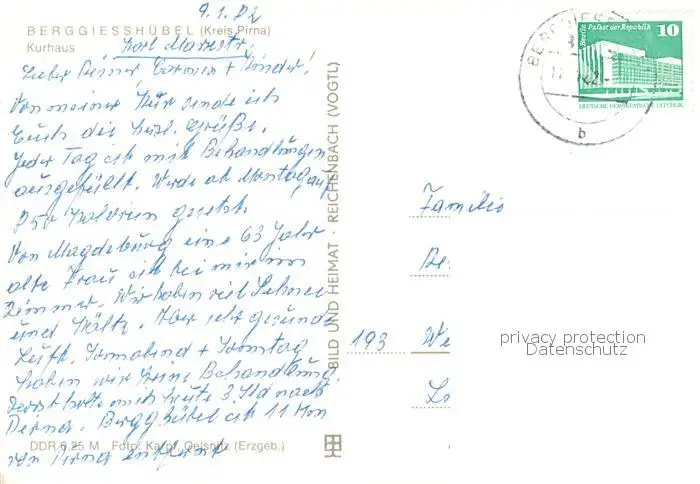 9.1.82
BERGGIESSHÜBEL (Kreis Pirna)
Kurhaus Karl Marxstr.
Lieber Reiner, Carmen + Kinder!
Von meiner Kur sende ich
Euch die herzl. Grüße.
Jeder Tag ist mit Behandlungen
ausgefüllt. Werde ab Montag auf
850 Kalorien gesetzt.
Von Magdeburg eine 63 Jahr
alte Frau ist bei mir im
Zimmer. Wir haben viel Schnee
und Kälte. Aber sehr gesunde
Luft. Sonnabend + Sonntag
haben wir keine Behandlung.
heute 3 Std nach
Pirna. Bergghübel ist 11 km
von Pirna entfernt
DDR 0,25 M Foto: Karpf, Oelsnitz (Erzgeb.)
BILD UND HEIMAT REICHENBACH (VOGTL)
BERGGIESS
b
Berlin Palast der Republik
10
DEUTSCHE DEMOKRATISCHE REPUBLIK
Familie
193 We
privacy protection
Datenschutz